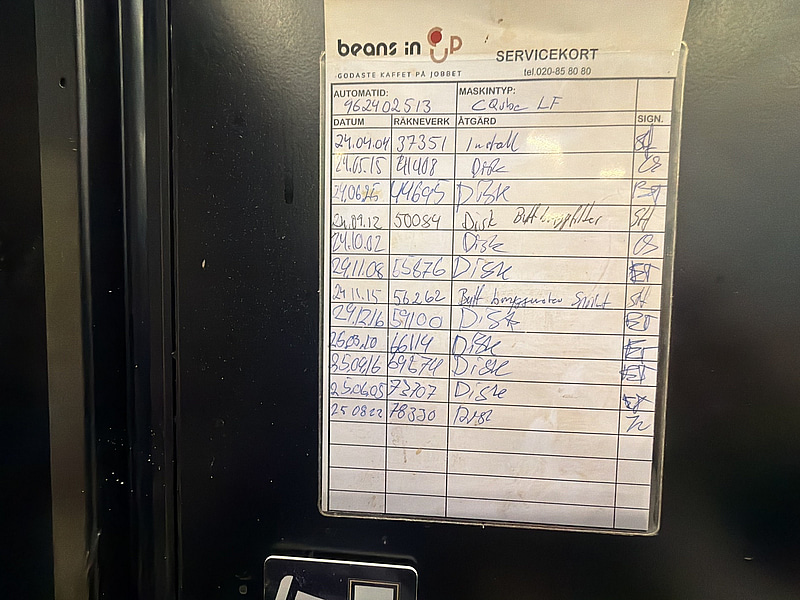 beans in cup
GODASTE KAFFET PÅ JOBBET
SERVICEKORT
tel.020-85 80 80
AUTOMATID: 962402513 MASKINTYP: CQube LF
DATUM RÄKNEVERK ÅTGÄRD SIGN.
24.04.04 37351 Install
24.05.15 41408 Disk
24.06.25 44695 Disk
24.09.12 50084 Disk Butt SH
24.10.02 Disk
24.11.08 55876 Disk ET
24.11.15 56262 Butt SH
24.12.16 59100 Disk ET
25.03.10 66114 Disk ET
25.04.16 69674 Disk ET
25.06.05 73707 Disk
25 08 22 78330 Disk